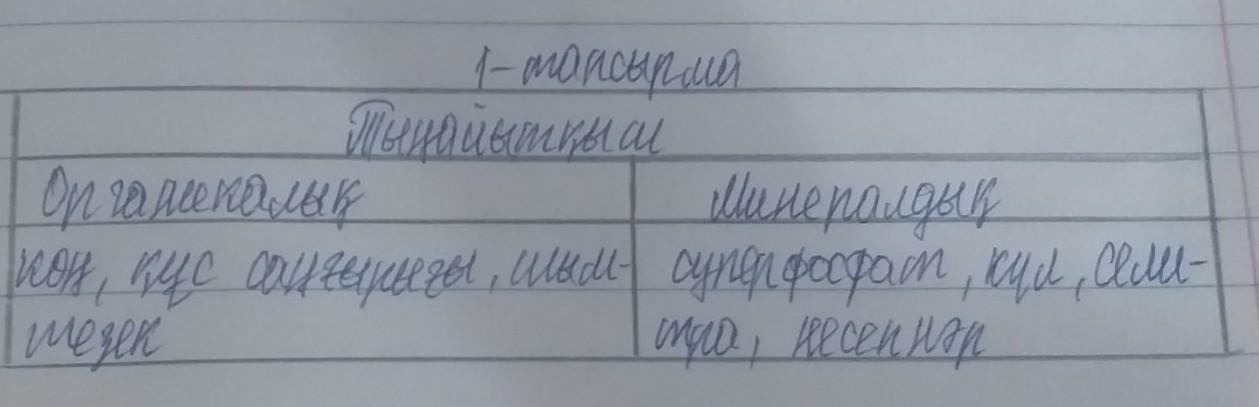 1-тапсырма
Тыңайытқыш
Органикалық
Минералдық
көң, құс саңғырығы, шым-
тезек
суперфосфат, күл, сели-
тра, несепнәр